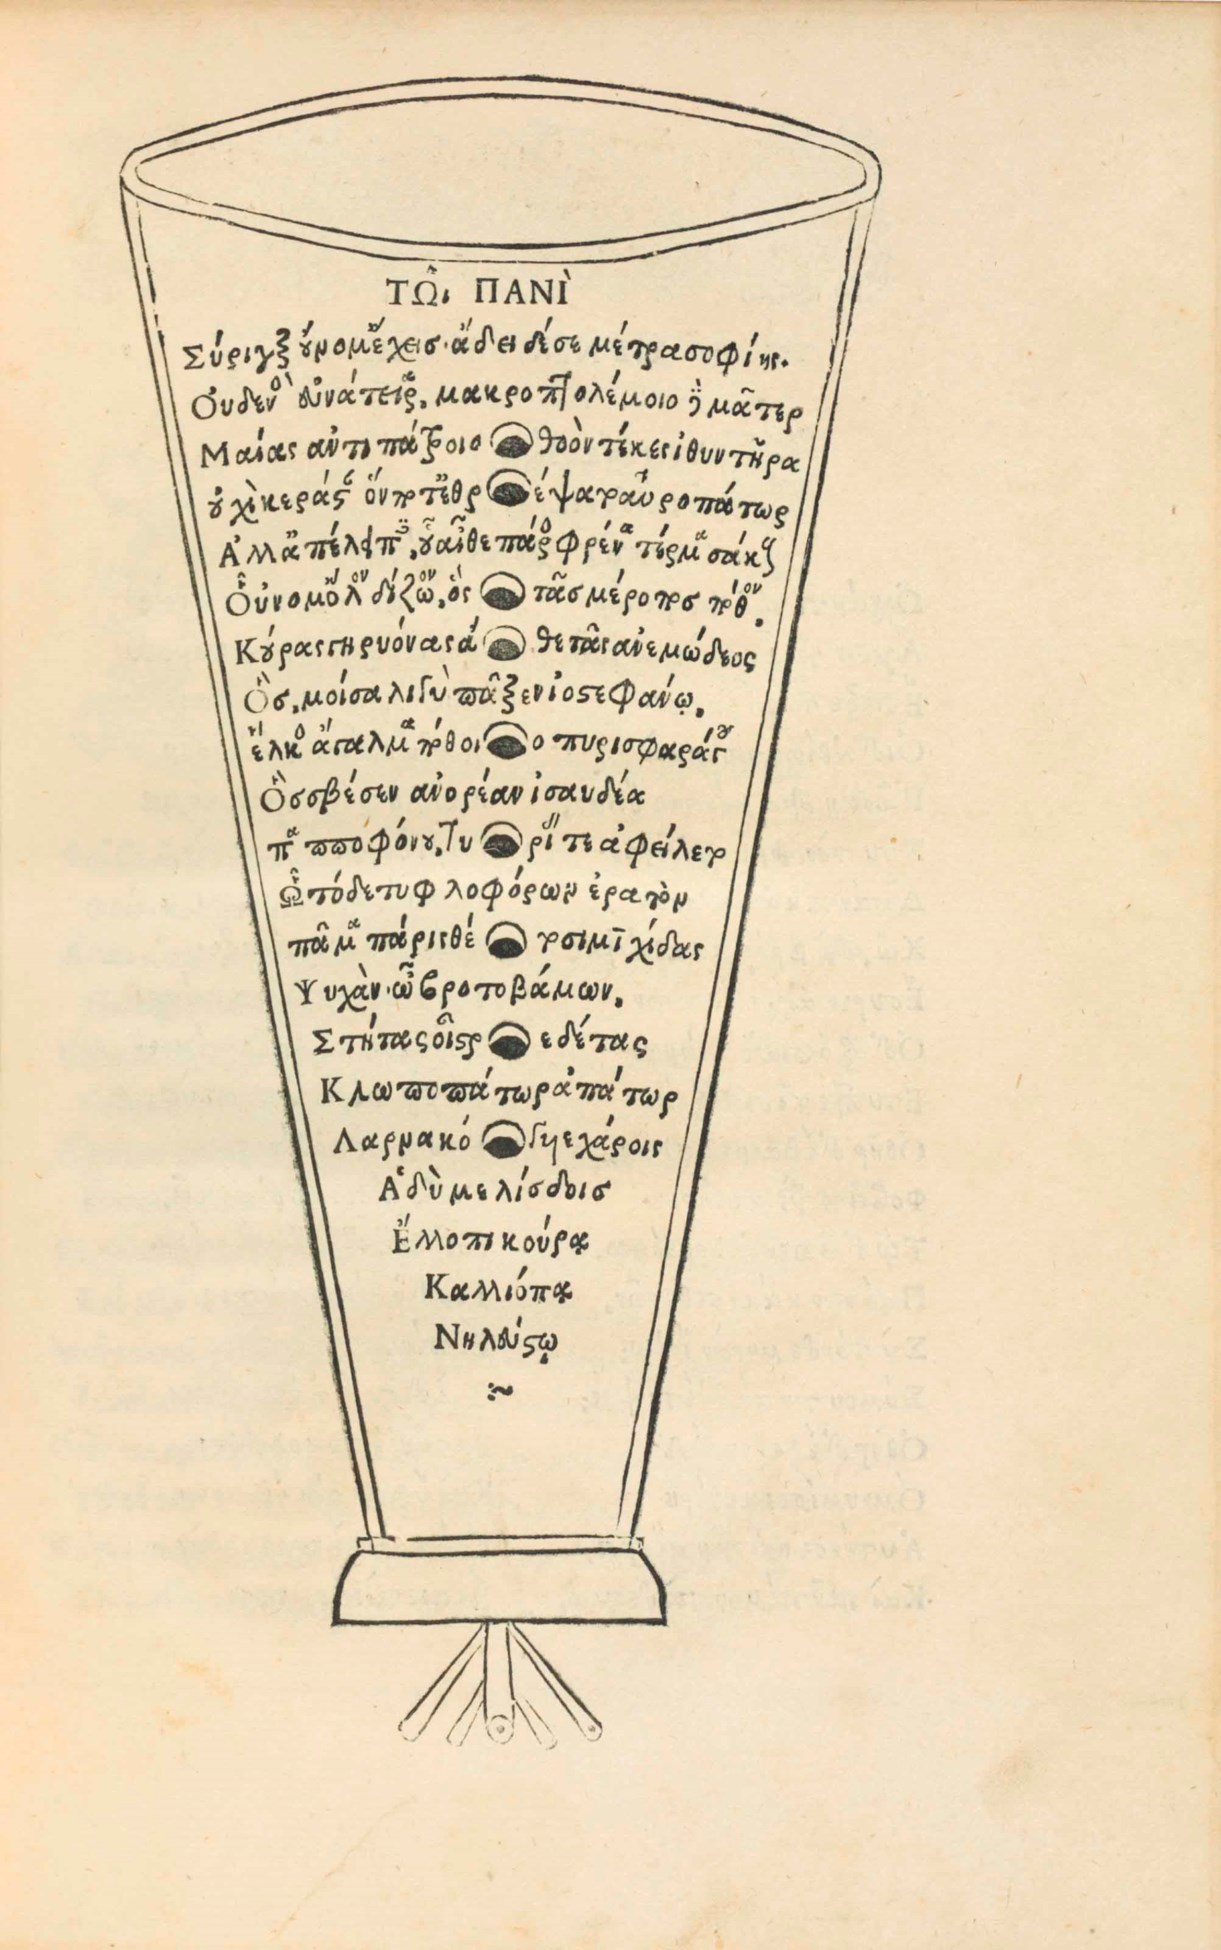 ΤΩ͂ι ΠΑΝῚ
Σύριγξ οὔνομ' ἔχεισ· ἄδει δέ σε μέτρα σοφίης.
Οὐδενὸς εὐνάτειρα, μακροπτολέμοιο δὲ μᾶτερ
Μαίας αντιπάτροιο θοὸν τέκες ἰθυντῆρα
οὐχὶ κεράσταν ὅν ποτε θρέψατο ταυροπάτωρ
Αλλ' οὗ
Οὔνομ' ὅλον δίζωον, ὃς τᾶσ μέροπος πόθον.
Κούρας γηρυόνας ἀ θε τᾶς ανεμώδεος
Ὃσ, μοίσα λιγὺ πᾶξεν ἰοστεφάνῳ.
ἕλκος ἄγαλμα πόθοιο πυρισφαράγου
Ὃσ σβέσεν ανορέαν ἰσαυδέα
παπποφόνου, Τυρί τε ἀφείλετο
Ὧ τόδε τυφλοφόρων ἐρατὸν
πᾶμα πάρις θέτο σιμιχίδας
Ψυχὰν·ὧ βροτοβάμων,
Στήτας οἶστρε δέτας
Κλωποπάτωρ ἀπάτωρ
Λαρνακόγυιε χάροις
Ἁδὺ μελίσδοισ
Ἔλλοπι κούρᾳ
Καλλιόπᾳ
Νηλεύστῳ